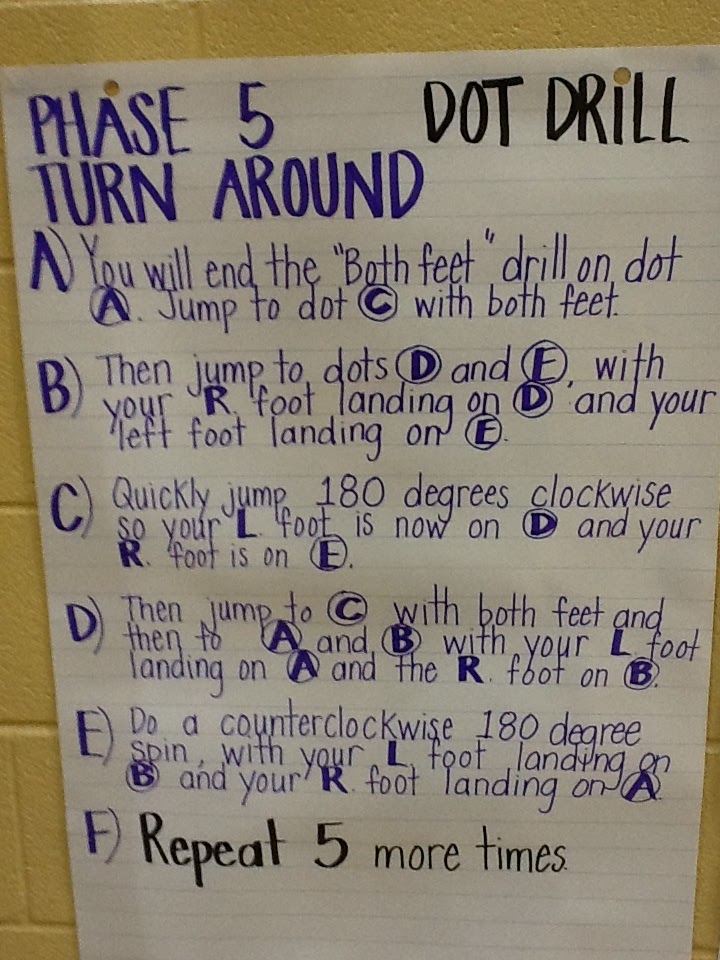 PHASE 5 DOT DRiLL
TURN AROUND
A) You will end the "Both feet" drill on dot
A. Jump to dot C with both feet.
B) Then jump to dots D and E, with
your R. foot landing on D and your
left foot landing on E.
C) Quickly jump 180 degrees clockwise
so your L. foot is now on D and your
R. foot is on E.
D) Then jump to C with both feet and
then to A and B with your L foot
landing on A and the R. foot on B.
E) Do a counterclockwise 180 degree
spin, with your L. foot landing on
B and your R. foot landing on A.
F) Repeat 5 more times.